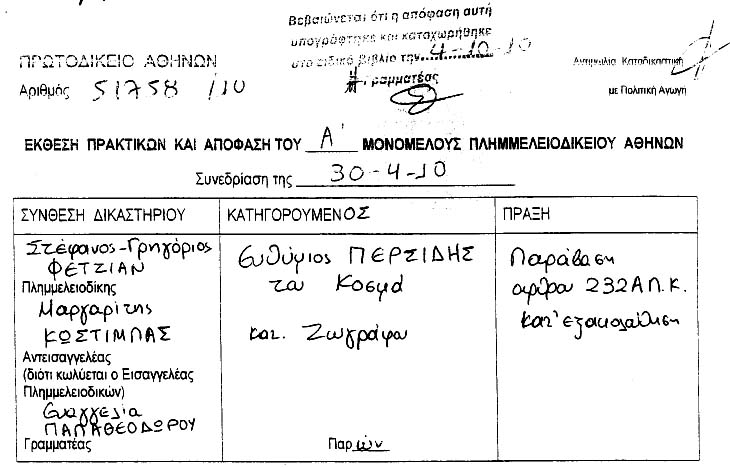 Βεβαιώνεται ότι η απόφαση αυτή
υπογράφτηκε και καταχωρήθηκε
στο ειδικό βιβλίο την 4-10-10
Γραμματέας
ΠΡΩΤΟΔΙΚΕΙΟ ΑΘΗΝΩΝ
Αριθμός 51758/10
Αντιμωλία Καταδικαστική
με Πολιτική Αγωγη
ΕΚΘΕΣΗ ΠΡΑΚΤΙΚΩΝ ΚΑΙ ΑΠΟΦΑΣΗ ΤΟΥ Α' ΜΟΝΟΜΕΛΟΥΣ ΠΛΗΜΜΕΛΕΙΟΔΙΚΕΙΟΥ ΑΘΗΝΩΝ
Συνεδρίαση της 30-4-10
ΣΥΝΘΕΣΗ ΔΙΚΑΣΤΗΡΙΟΥ ΚΑΤΗΓΟΡΟΥΜΕΝΟΣ ΠΡΑΞΗ
Στέφανος-Γρηγόριος
ΦΕΤΖΙΑΝ
Πλημμελειοδίκης
Μαργαρίτης
ΚΩΣΤΙΜΠΑΣ
Αντεισαγγελέας
(διότι κωλύεται ο Εισαγγελέας
Πλημμελειοδικών)
Ευαγγελία
ΠΑΠΑΘΕΟΔΩΡΟΥ
Γραμματέας
Ευθύμιος ΠΕΡΣΙΔΗΣ
του Κοσμά
κατ. Ζωγράφου
Παρών
Παράβαση
αρθρου 232Α Π.Κ.
κατ' εξακολούθηση